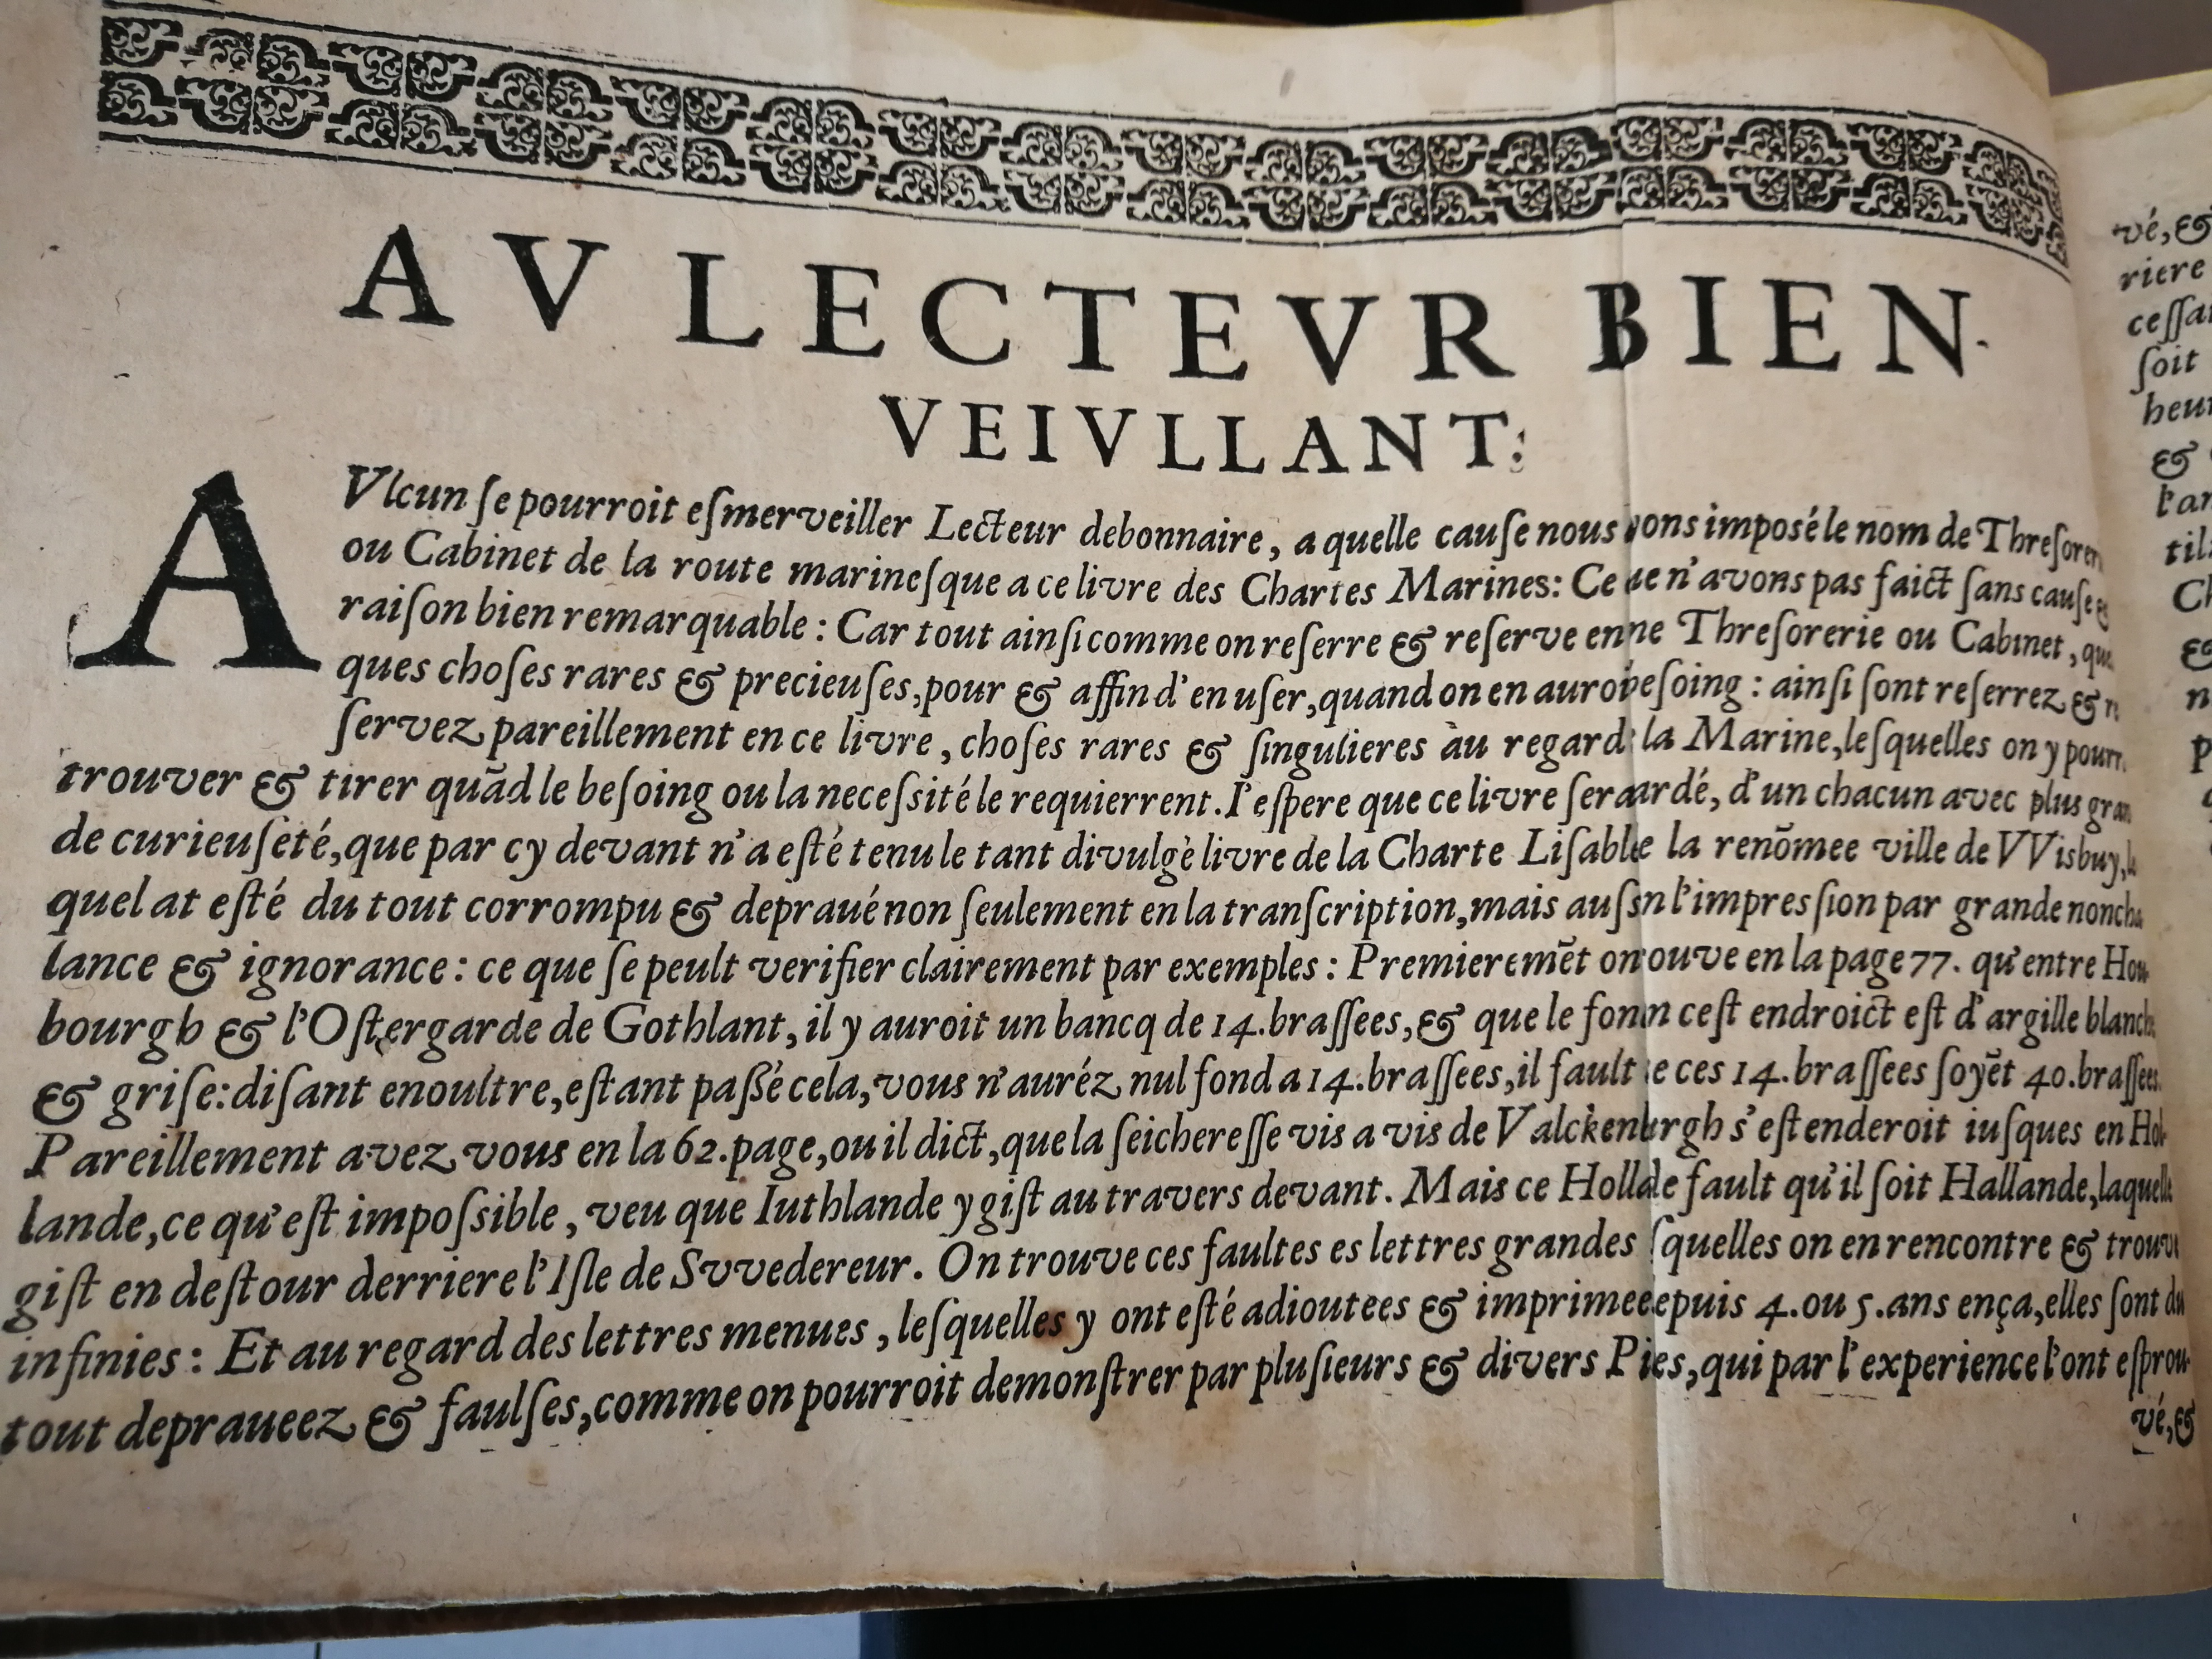 AV LECTEVR BIEN-
VEIVLLANT:
AVlcun ſe pourroit eſmerveiller Lecteur debonnaire, a quelle cauſe nous imposé le nom de
ou Cabinet de la route marineſque a ce livre des Chartes Marines: Ce n'avons pas faict ſans cauſe &
raiſon bien remarquable: Car tout ainſi comme on reſerre & reſerve en Threſorerie ou Cabinet,
ques choſes rares & precieuſes, pour & affin d'en uſer, quand on en beſoing: ainſi ſont reſerrez &
ſervez pareillement en ce livre, choſes rares & ſingulieres au regard la Marine, leſquelles on y
trouver & tirer quãd le beſoing ou la neceſsité le requierrent. I'eſpere que ce livre d'un chacun avec plus
de curieuſeté, que par cy devant n'a eſté tenu le tant divulgè livre de la Charte Liſable la renõmee ville de VVisbuy,
quel at eſté du tout corrompu & depraué non ſeulement en la tranſcription, mais l'impreſsion par grande
lance & ignorance: ce que ſe peult verifier clairement par exemples: Premieremẽt on en la page 77. qu'entre
bourgh & l'Oſtergarde de Gothlant, il y auroit un bancq de 14. braſſees, & que le ceſt endroict eſt d'argille
& griſe: diſant enoultre, eſtant paßé cela, vous n'auréz nul fond a 14. braſſees, il fault ces 14. braſſees ſoyẽt 40. braſſees.
Pareillement avez vous en la 62. page, ou il dict, que la ſeichereſſe vis a vis de Valckenburgh s'eſtenderoit iuſques en Hol-
lande, ce qu'eſt impoſsible, veu que Iuthlande y giſt au travers devant. Mais ce fault qu'il ſoit Hallande, laquelle
giſt en deſtour derriere l'Iſle de Svvedereur. On trouve ces faultes es lettres grandes on en rencontre &
infinies: Et au regard des lettres menues, leſquelles y ont eſté adioutees & 4. ou 5. ans ença, elles ſont du
tout depraueez & faulſes, comme on pourroit demonſtrer par pluſieurs & divers qui par l'experience l'ont eſprou-
vé, &
vé, &
riere
ſoit
&